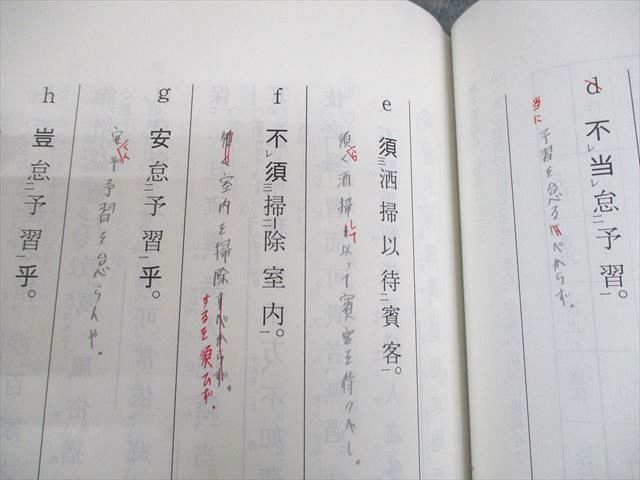 d 不レ当レ怠二予習一。
当に予習を怠るべからず。
e 須三洒掃以待二賓客一。
須く洒掃して以って賓客を待つべし。
f 不レ須三掃二除室内一。
室内を掃除すべからず。
するを須ひず。
g 安怠二予習一乎。
安くんぞ予習を怠らんや。
h 豈怠二予習一乎。